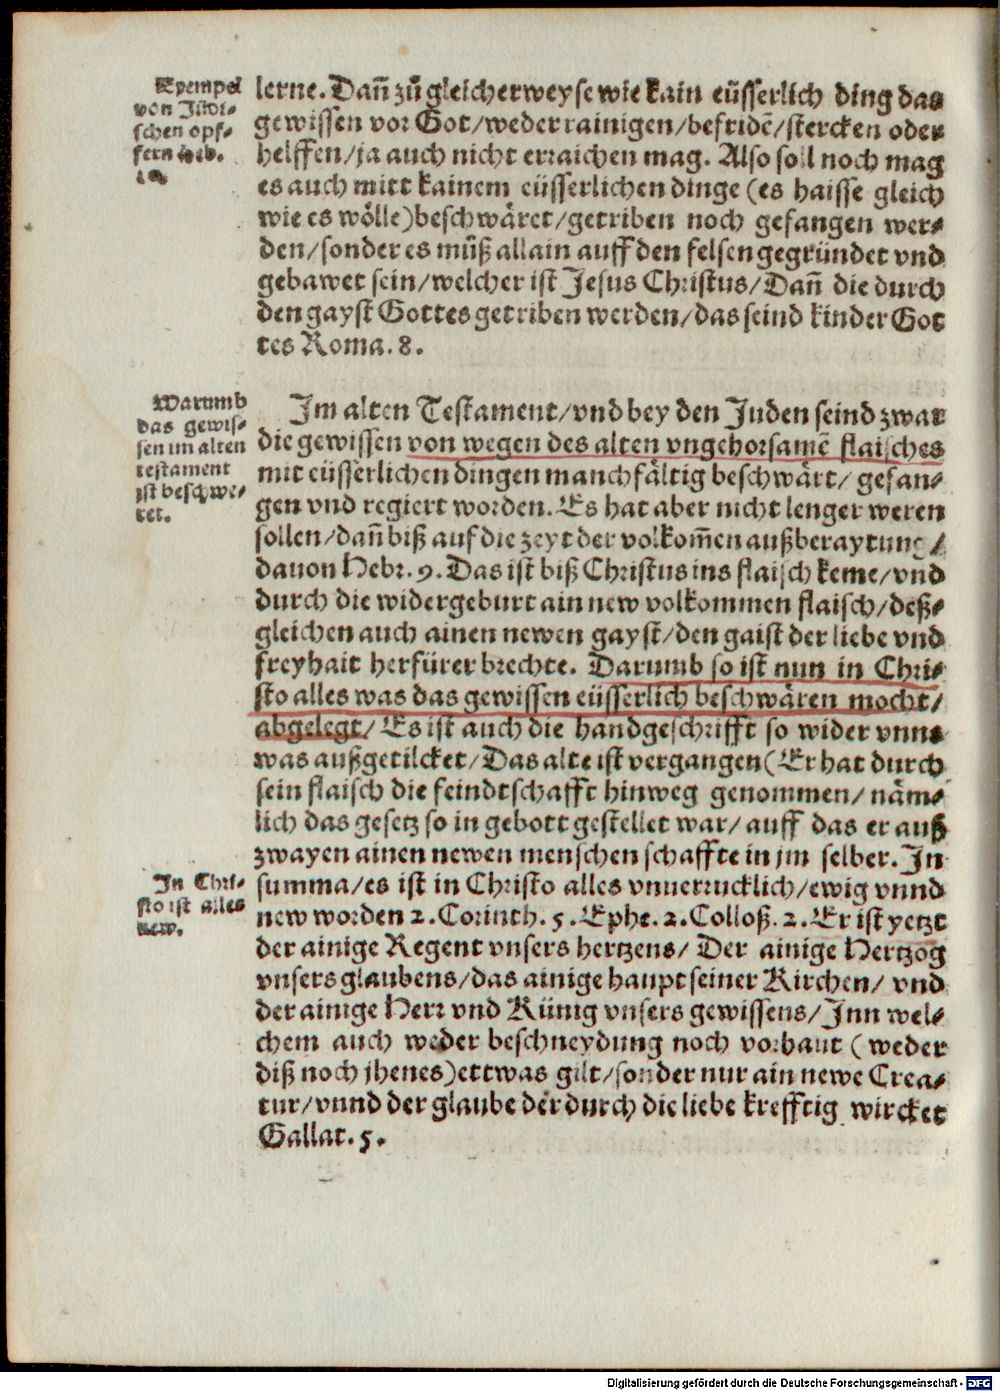 Exempel
von Jüdi-
schen opf-
fern Heb.
10.
lerne. Dañ zů gleicherweyse wie kain eüsserlich ding das
gewissen vor Got/weder rainigen/befridē/stercken oder
helffen/ja auch nicht erraichen mag. Also soll noch mag
es auch mitt kainem eüsserlichen dinge (es haisse gleich
wie es wölle) beschwäret/getriben noch gefangen wer-
den/sonder es můß allain auff den felsen gegründet vnd
gebawet sein/welcher ist Jesus Christus/Dañ die durch
den gayst Gottes getriben werden/das seind kinder Got
tes Roma. 8.
Warumb
das gewis-
sen im alten
testament
ist beschwe-
ret.
Im alten Testament/vnd bey den Juden seind zwar
die gewissen von wegen des alten vngehorsamē flaisches
mit eüsserlichen dingen manchfältig beschwärt/ gefan-
gen vnd regiert worden. Es hat aber nicht lenger weren
sollen/dañ biß auf die zeyt der volkom̄en außberaytung/
dauon Hebr. 9. Das ist biß Christus ins flaisch keme/vnd
durch die widergeburt ain new volkommen flaisch/deß-
gleichen auch ainen newen gayst/den gaist der liebe vnd
freyhait herfürer brechte. Darumb so ist nun in Chri-
sto alles was das gewissen eüsserlich beschwären mocht/
abgelegt/ Es ist auch die handgeschrifft so wider vnns
was außgetilcket/Das alte ist vergangen (Er hat durch
sein flaisch die feindtschafft hinweg genommen/ näm-
lich das gesetz so in gebott gestellet war/ auff das er auß
zwayen ainen newen menschen schaffte in jm selber. In
In Chri-
sto ist alles
new.
summa/es ist in Christo alles vnuerrucklich/ewig vnnd
new worden 2. Corinth. 5. Ephe. 2. Colloß. 2. Er ist yetzt
der ainige Regent vnsers hertzens/ Der ainige Hertzog
vnsers glaubens/das ainige haupt seiner Kirchen/ vnd
der ainige Herr vnd Künig vnsers gewissens/Inn wel-
chem auch weder beschneydung noch vorhaut ( weder
diß noch jhenes) ettwas gilt/sonder nur ain newe Crea-
tur/vnnd der glaube der durch die liebe krefftig wircket
Gallat. 5.
Digitalisierung gefördert durch die Deutsche Forschungsgemeinschaft - DFG